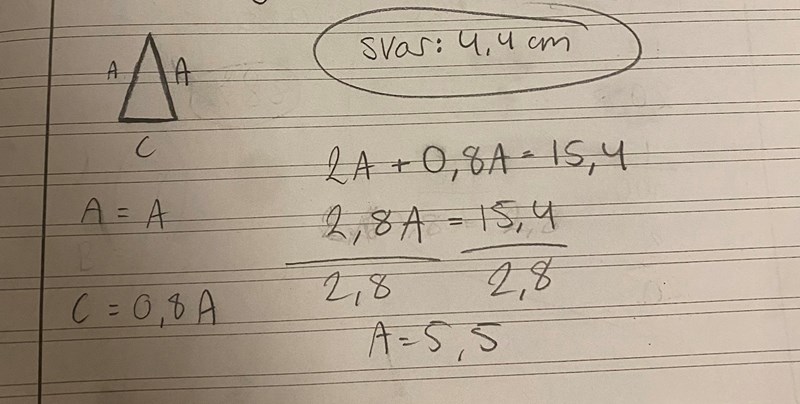 svar: 4,4 cm
A A
C
2A + 0,8A = 15,4
A = A
2,8A = 15,4
2,8 2,8
C = 0,8A
A = 5,5